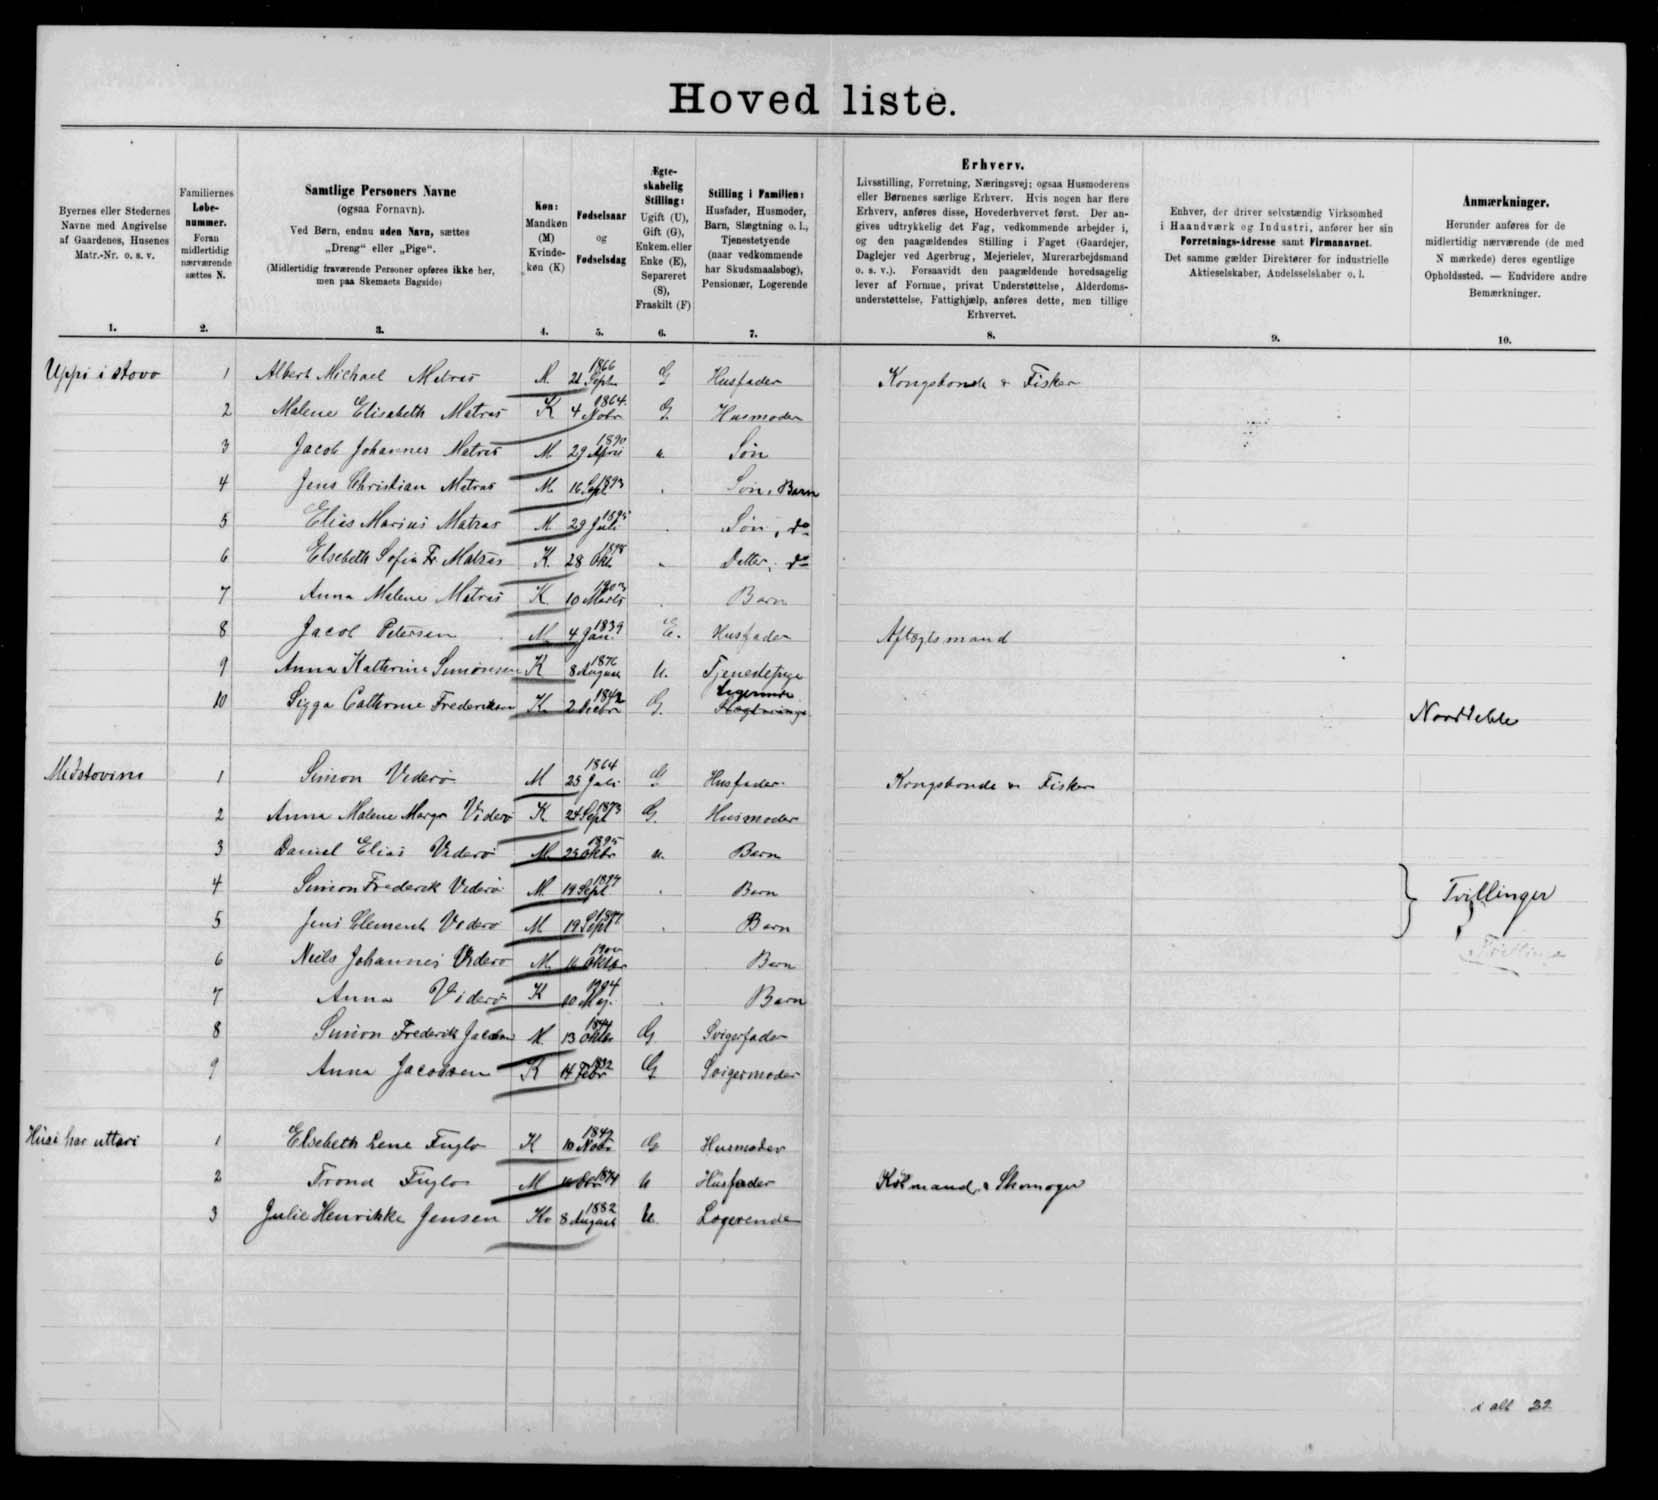 Hoved liste.
Byernes eller Stedernes Navne med Angivelse af Gaardenes, Husenes Matr.-Nr. o. s. v.
Familiernes Løbe-nummer. Foran midlertidig nærværende sættes N.
Samtlige Personers Navne (ogsaa Fornavn). Ved Børn, endnu uden Navn, sættes „Dreng“ eller „Pige“. (Midlertidig fraværende Personer opføres ikke her, men paa Skemaets Bagside)
Køn: Mandkøn (M) Kvinde-køn (K)
Fødselsaar og Fødselsdag
Ægte-skabelig Stilling: Ugift (U), Gift (G), Enkem. eller Enke (E), Separeret (S), Fraskilt (F)
Stilling i Familien: Husfader, Husmoder, Barn, Slægtning o. l., Tjenestetyende (naar vedkommende har Skudsmaalsbog), Pensionær, Logerende
Erhverv. Livsstilling, Forretning, Næringsvej; ogsaa Husmoderens eller Børnenes særlige Erhverv. Hvis nogen har flere Erhverv, anføres disse, Hovederhvervet først. Der an-gives udtrykkelig det Fag, vedkommende arbejder i, og den paagældendes Stilling i Faget (Gaardejer, Daglejer ved Agerbrug, Mejerielev, Murerarbejdsmand o. s. v.). Forsaavidt den paagældende hovedsagelig lever af Formue, privat Understøttelse, Alderdoms-understøttelse, Fattighjælp, anføres dette, men tillige Erhvervet.
Enhver, der driver selvstændig Virksomhed i Haandværk og Industri, anfører her sin Forretnings-Adresse samt Firmanavnet. Det samme gælder Direktører for industrielle Aktieselskaber, Andelsselskaber o. l.
Anmærkninger. Herunder anføres for de midlertidig nærværende (de med N mærkede) deres egentlige Opholdssted. — Endvidere andre Bemærkninger.
1. 2. 3. 4. 5. 6. 7. 8. 9. 10.
Uppi i stovo 1 Albert Michael Matras M. 21 Septr 1866 G Husfader Kongsbonde & Fisker
2 Malene Elisabeth Matras K 4 Nobr 1864 G. Husmoder
3 Jacob Johannes Matras M. 29 April 1890 u. Søn
4 Jens Christian Matras M. 16 Sept 1893 Søn, Barn
5 Elias Marius Matras M 29 Juli 1895 Søn, do
6 Elsebeth Sofia Fr. Matras K. 28 Okt 1898 Datter, do
7 Anna Malene Matras K. 10 Marts Barn
8 Jacob Petersen M 4 Jan. 1839 E. Husfader Aftægtsmand
9 Anna Katherine Simonsen K 8 August 1876 U. Tjenestepige
10 Sigga Cathrine Frederiksen K 2 Decbr 1842 G. Logerende
Midstovino 1 Simon Viderø M 23 Juli 1864 G. Husfader Kongsbonde & Fisker
2 Anna Malene Margr Viderø K 24 Sept 1873 G. Husmoder
3 Daniel Elias Viderø M. 23 Oktbr 1895 u. Barn
4 Simon Frederik Viderø M. 19 Sept 1897 Barn Tvillinger
5 Jens Clement Viderø M 19 Sept Barn
6 Niels Johannes Viderø M. Oktbr 1900 Barn
7 Anna Viderø K 10 Maj. 1904 Barn
8 Simon Frederik Jacobsen M. 13 Oktbr G Svigerfader
9 Anna Jacobsen K 14 Febr 1832 G Svigermoder
Húsi har uttari 1 Elsebeth Lene Fuglø K 10 Nobr G Husmoder
2 Trond Fuglø M 1874 U Husfader Købmand & Skomager
3 Julie Henrikke Jensen Kv 8 August 1882 U. Logerende
i alt 22